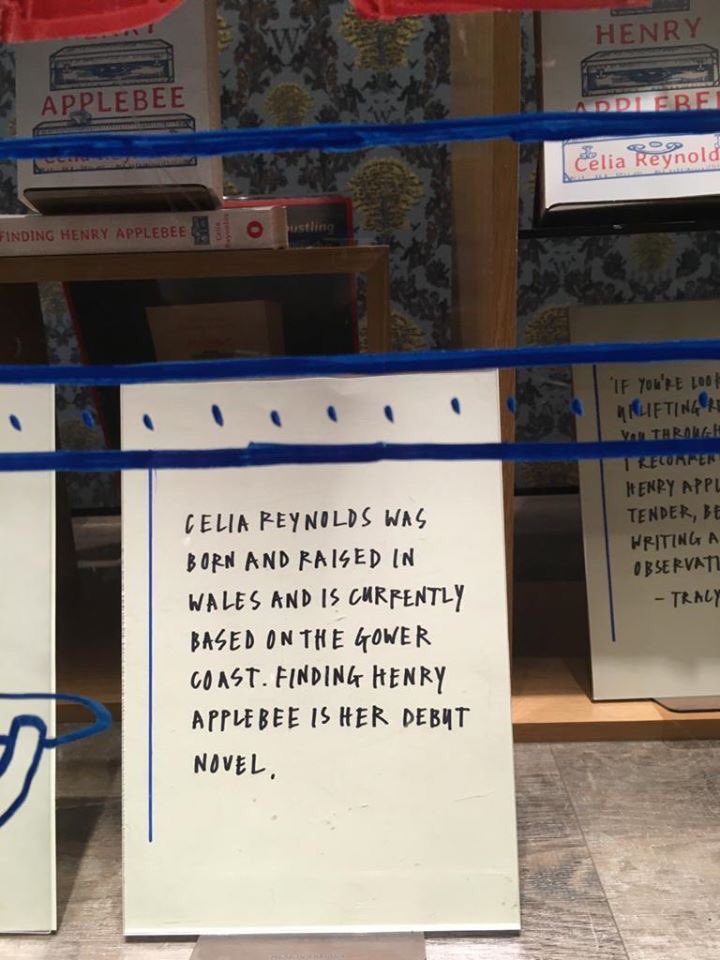 APPLEBEE
HENRY
APPLEBEE
Celia Reynold
FINDING HENRY APPLEBEE
Celia
Reynolds
ustling
CELIA REYNOLDS WAS
BORN AND RAISED IN
WALES AND IS CURRENTLY
BASED ON THE GOWER
COAST. FINDING HENRY
APPLEBEE IS HER DEBUT
NOVEL.
'IF YOU'RE LOO
UPLIFTING R
YOU THROUGH
I RECOMMEN
HENRY APPL
TENDER, BE
WRITING A
OBSERVATI
- TRACY